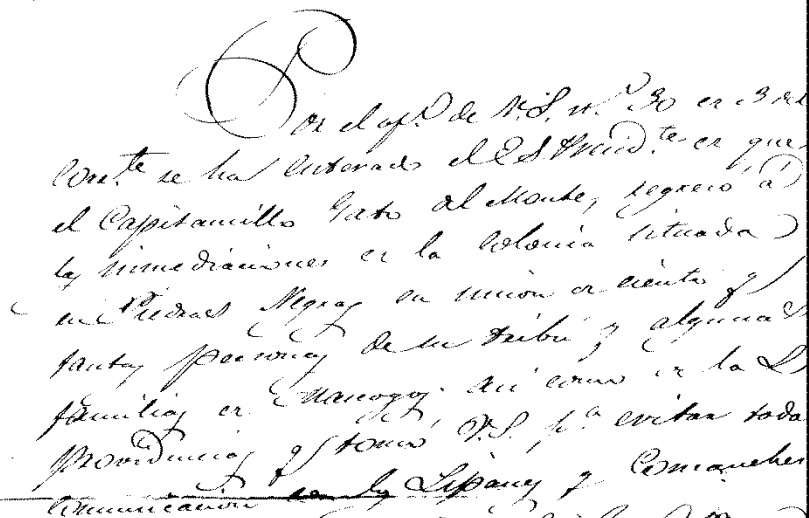 Por el ofº de V.S. nº 30 de 3 del
corrte se ha enterado el E.S. Presidte de que
el Capitancillo Gato del Monte, regresó á
las inmediaciones de la Colonia situada
en Piedras Negras en union de ciento y
tantas personas de su tribu y algunas
familias de Mascogos. así como de las
providencias q tomó V.S. pa evitar toda
comunicacion con los Lipanes y Comanches